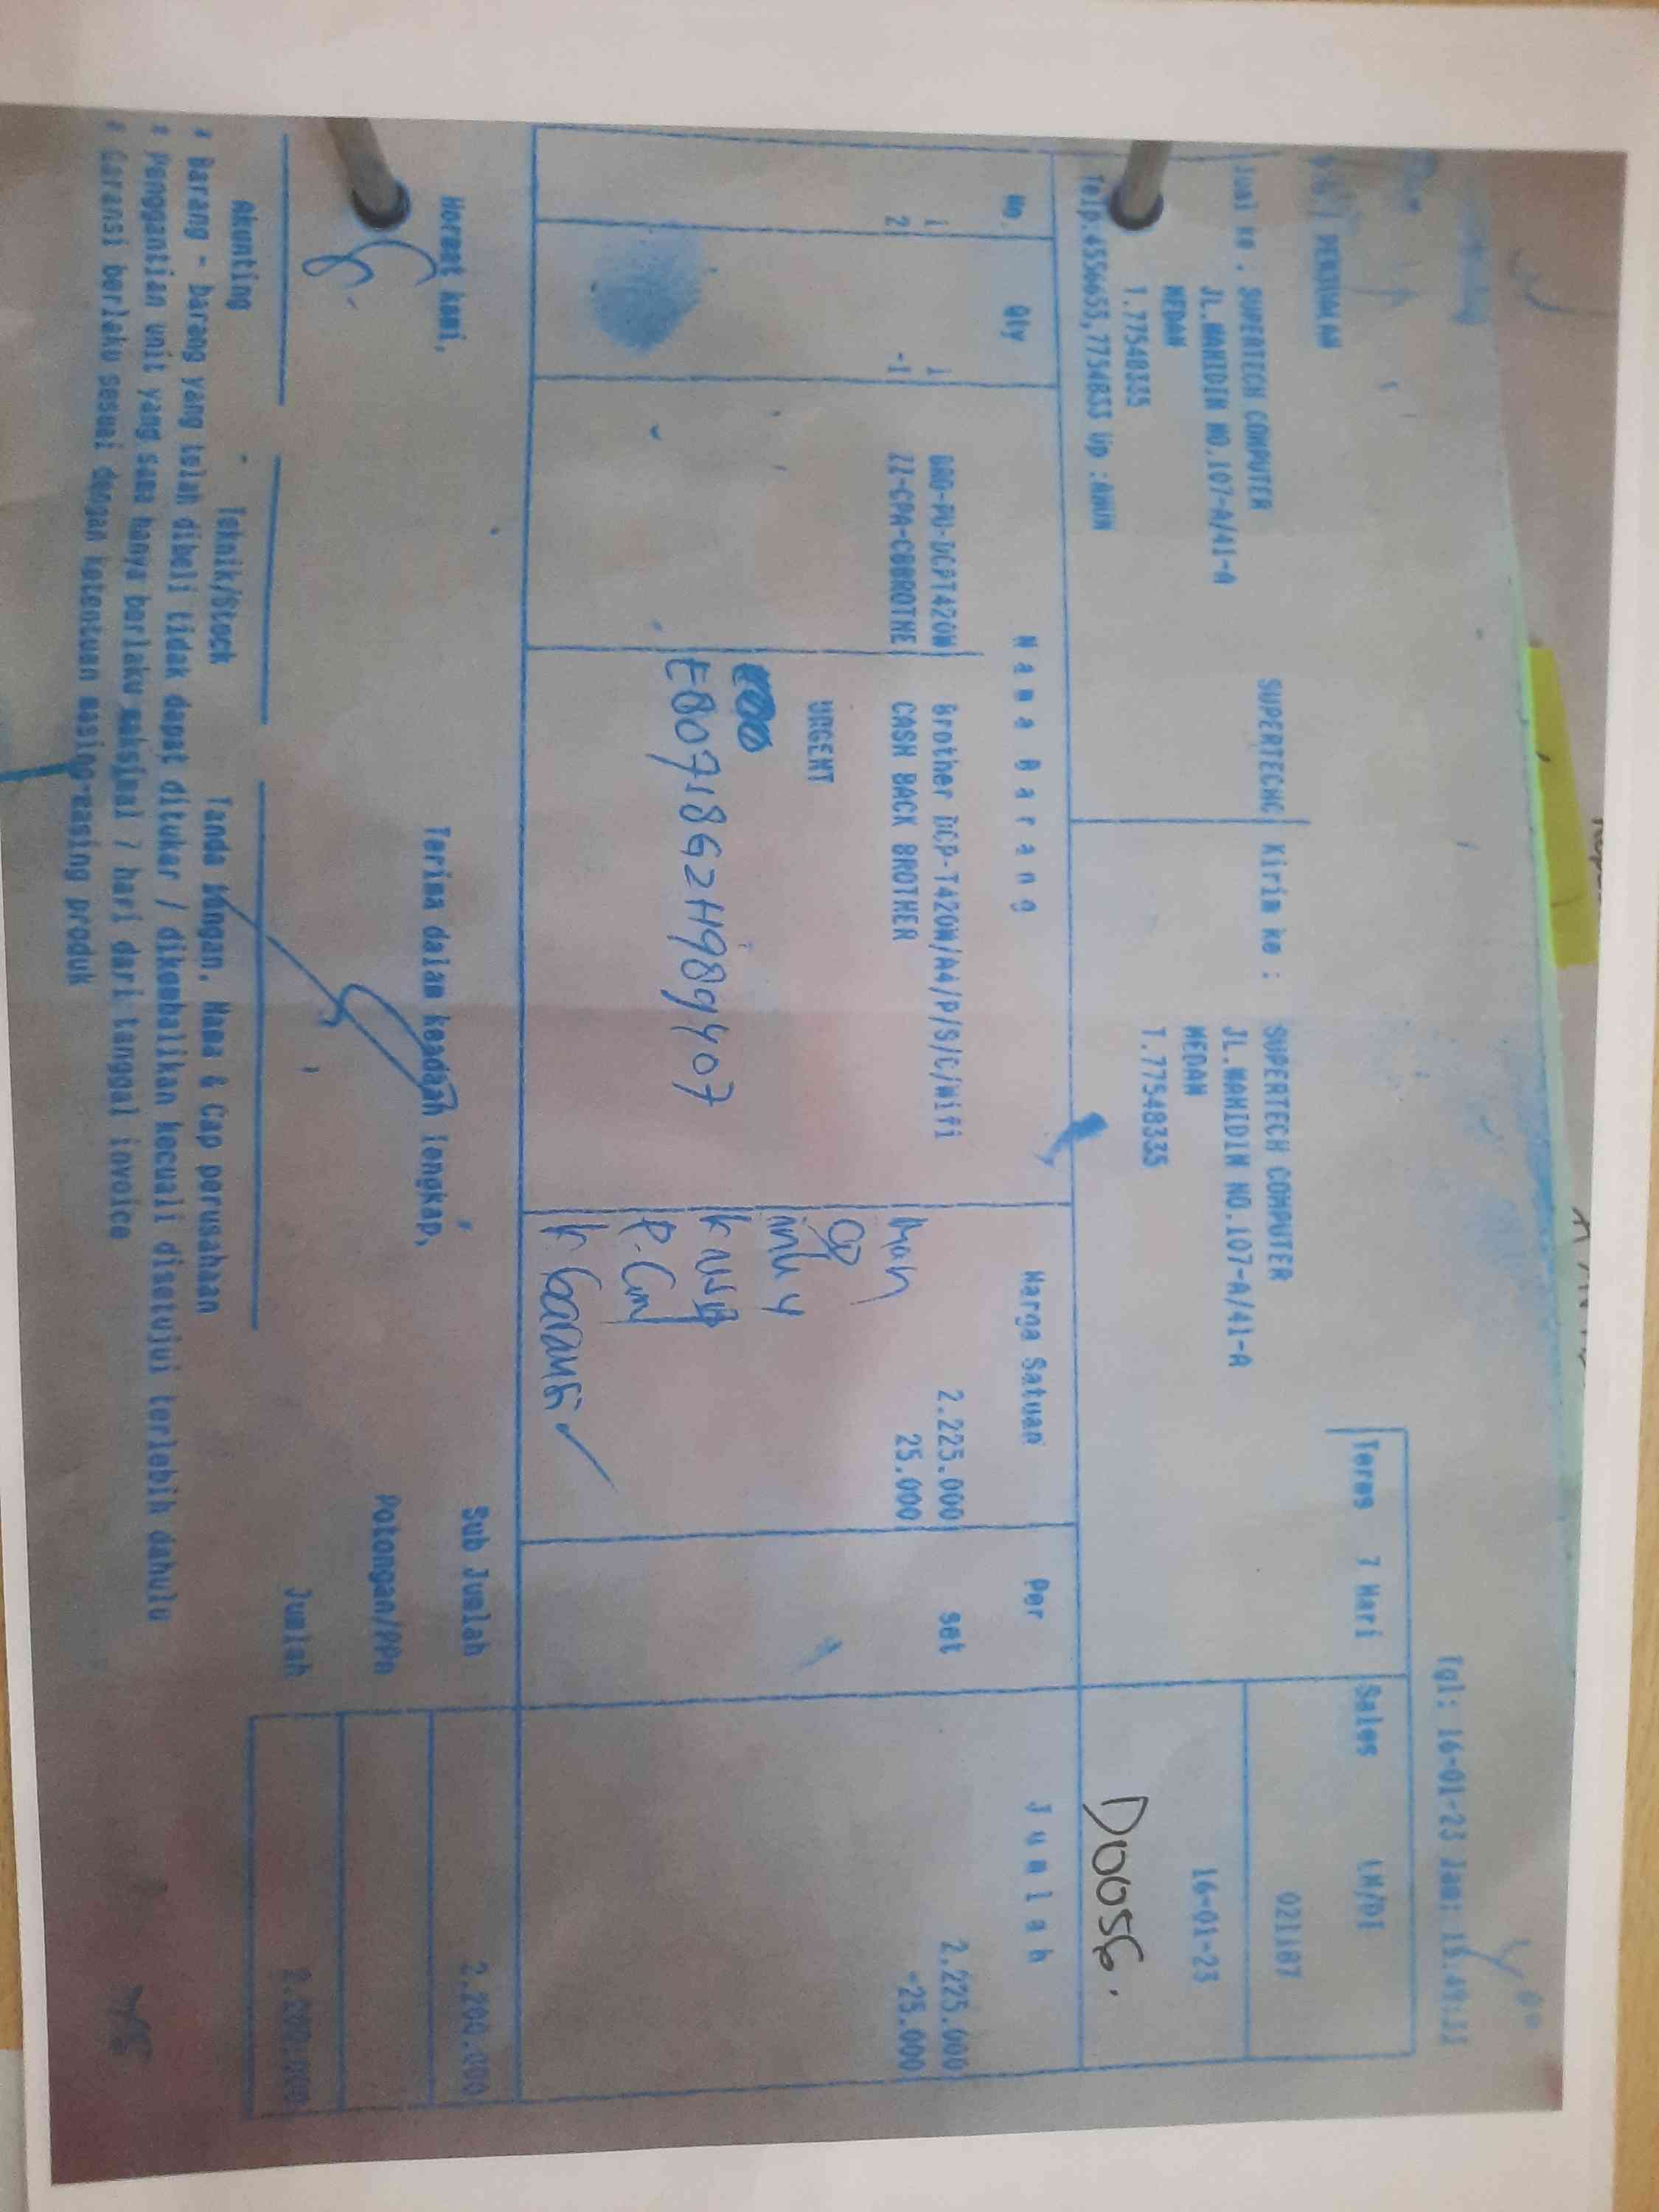 Tgl: 16-01-23 Jam: 15:49:33
PENJUALAN
Terms 7 Hari Sales LM/DI
Jual ke : SUPERTECH COMPUTER SUPERTECHC Kirim ke : SUPERTECH COMPUTER 021187
JL.WAHIDIN NO.107-A/41-A JL.WAHIDIN NO.107-A/41-A
MEDAN MEDAN 16-01-23
T.77548335 T.77548335
Telp:4556655,7754833 Up :AHUN D0056.
No. Qty Nama Barang Harga Satuan Per Jumlah
1 1 BRO-PU-DCPT420W Brother DCP-T420W/A4/P/S/C/Wifi 2.225.000 set 2.225.000
2 -1 ZZ-CPA-CBBROTHE CASH BACK BROTHER 25.000 -25.000
URGENT
E80718G2H989407
K. USB
K. Garansi ✓
Hormat kami, Terima dalam keadaan lengkap, Sub Jumlah 2.200.000
Potongan/PPn
Jumlah 2.200.000
Akunting Teknik/Stock Tanda tangan, Nama & Cap perusahaan
* Barang - barang yang telah dibeli tidak dapat ditukar / dikembalikan kecuali disetujui terlebih dahulu
* Penggantian unit yang sama hanya berlaku maksimal 7 hari dari tanggal invoice
* Garansi berlaku sesuai dengan ketentuan masing-masing produk